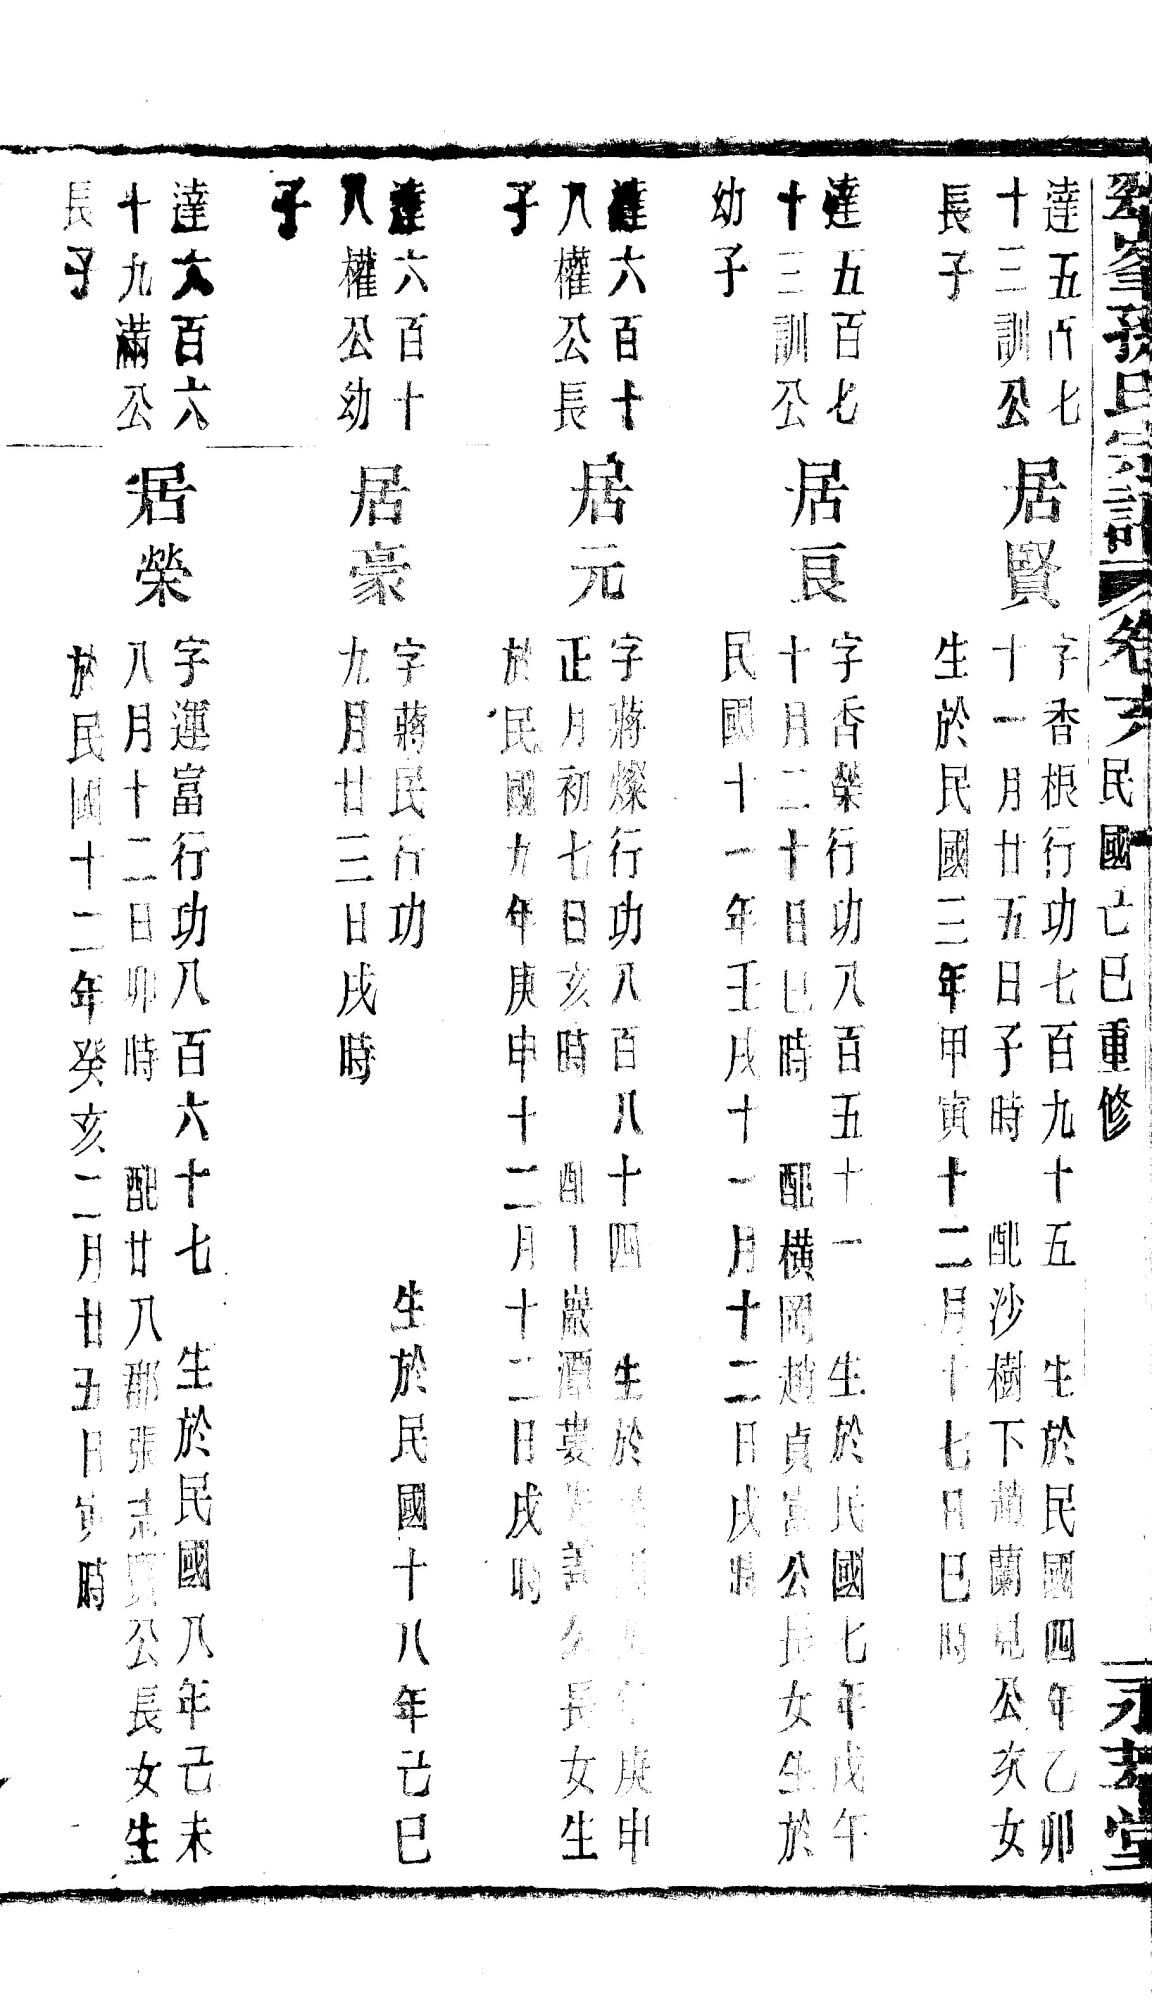 氏宗譜 卷 民國己巳重修 永 堂
達五百七
十三訓公
長子
居賢
字香根行功七百九十五 生於民國四年乙卯
十一月廿五日子時 配沙樹下趙蘭見公次女
生於民國三年甲寅十二月十七日巳時
達五百七
十三訓公
幼子
居良
字香榮行功八百五十一 生於民國七年戊午
十月二十日巳時 配橫岡趙貞富公長女生於
民國十一年壬戌十一月十二日戌時
達六百十
八權公長
子
居元
字蔣燦行功八百八十四 生於 庚申
正月初七日亥時 配 巖潭婁 善公長女生
於民國九年庚申十二月十二日戌時
達六百十
八權公幼
子
居豪
字蔣民行功 生於民國十八年己巳
九月廿三日戌時
達六百六
十九滿公
長子
居榮
字運富行功八百六十七 生於民國八年己未
八月十二日卯時 配廿八都張志賢公長女生
於民國十二年癸亥二月廿五日寅時